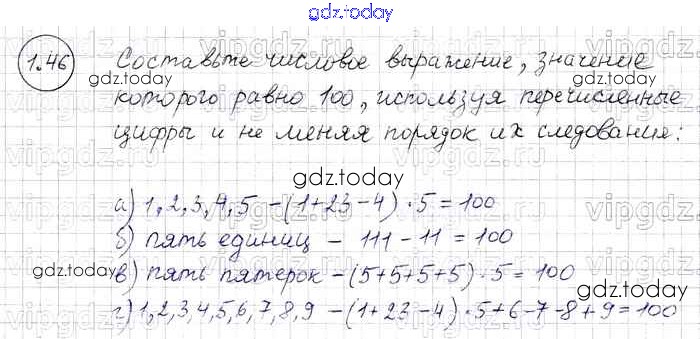 gdz.today
1.46
Составьте числовое выражение, значение
которого равно 100, используя перечисленные
цифры и не меняя порядок их следования:
gdz.today
gdz.today
gdz.today
а) 1,2,3,4,5 – (1+23-4)·5=100
б) пять единиц – 111-11=100
в) пять пятерок – (5+5+5+5)·5=100
gdz.today
gdz.today
г) 1,2,3,4,5,6,7,8,9 – (1+23-4)·5+6-7-8+9=100
vipgdz.ru